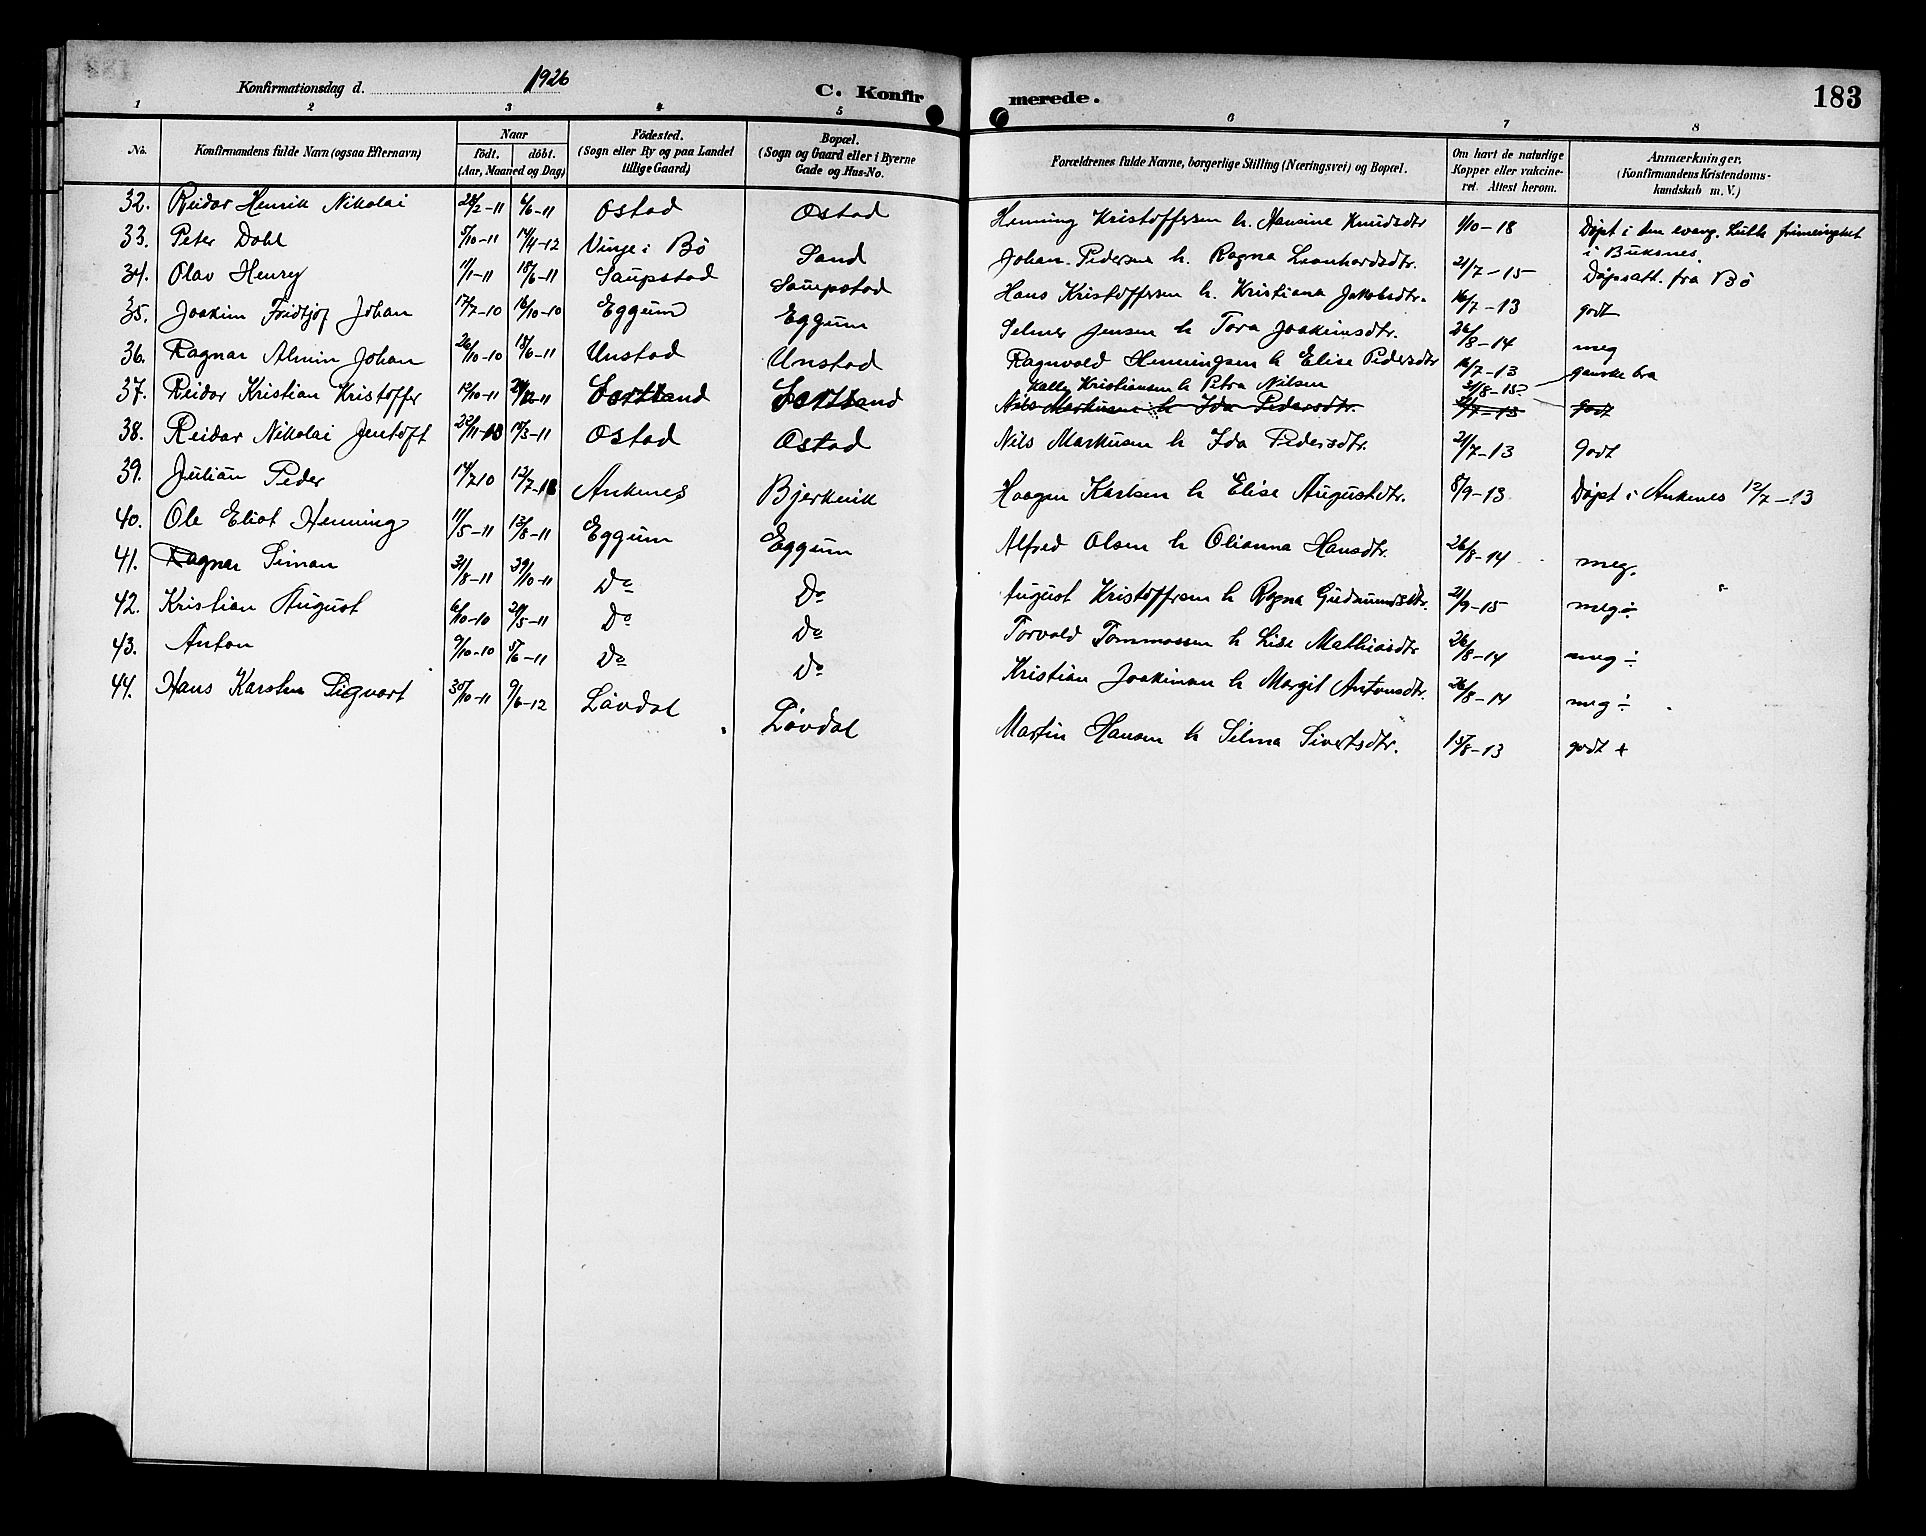 Konfirmationsdag d. 1926
C. Konfirmerede.
183
1 2 3 4 5 6 7 8
No. Konfirmandens fulde Navn (ogsaa Efternavn) Naar født. døbt. (Aar, Maaned og Dag) Fødested. (Sogn eller By og paa Landet tillige Gaard) Bopæl. (Sogn og Gaard eller i Byerne Gade og Hus-No. Forældrenes fulde Navne, borgerlige Stilling (Næringsvei) og Bopæl. Om havt de naturlige Kopper eller vaccineret. Attest herom. Anmærkninger, (Konfirmandens Kristendomskundskab m. V.)
32. Reidar Henrik Nikolai 28/2-11 4/6-11 Ostad Ostad Henning Kristoffersen h. Hansine Knudsdtr 1/10-18 Døpt i den evang. Luth. frimenighet i Buksnes.
33. Peter Dahl 5/10-11 14/4-12 Vinje i Bø Sand Johan Pedersen h. Ragna Leonhardsdtr. 21/7-15 Døpsatt. fra Bø
34. Olav Henry 11/1-11 18/6-11 Saupstad Saupstad Hans Kristoffersen h. Kristiana Jakobsdtr. 16/7-13 godt
35. Joakim Fridtjof Johan 17/7-10 16/10-10 Eggum Eggum Selmer Jensen h Tora Joakimsdtr. 26/8-14 meg
36. Ragnar Almin Johan 26/10-10 18/6-11 Unstad Unstad Ragnvald Henningsen h Elise Pedersdtr 16/7-13 ganske bra
37. Reidar Kristian Kristoffer 12/10-11 Sortland Sortland Kalle Kristiansen h Petra Nilsen 31/8-15
Nils Markusen h Ida Pedersdtr. 21/7-13 Godt
38. Reidar Nikolai Jentoft 22/11-10 19/3-11 Ostad Ostad Nils Markusen h Ida Pedersdtr. 21/7-13 Godt
39. Julian Peder 14/7-10 12/7-13 Ankenes Bjerkvik Haagen Karlsen h Elise Augustdtr. 8/9-13 Døpt i Ankenes 12/7-13
40. Ole Eliot Henning 11/5-11 13/8-11 Eggum Eggum Alfred Olsen h Olianna Hansdtr. 26/8-14 meg.
41. Ragnar Simon 31/8-11 29/10-11 Do Do August Kristoffersen h Ragna Gudmundsdtr. 21/9-15 meg÷
42. Kristian August 6/10-10 21/5-11 Do Do Torvald Tommassen h Lise Mathiasdtr 26/8-14 meg ÷
43. Anton 9/10-10 5/6-11 Do Do Kristian Joakimsen h Margit Antonsdtr. 26/8-14 meg ÷
44. Hans Karsten Sigvart 30/10-11 9/6-12 Løvdal Løvdal Martin Hansen h Selma Sivertsdtr. 15/8-13 godt +